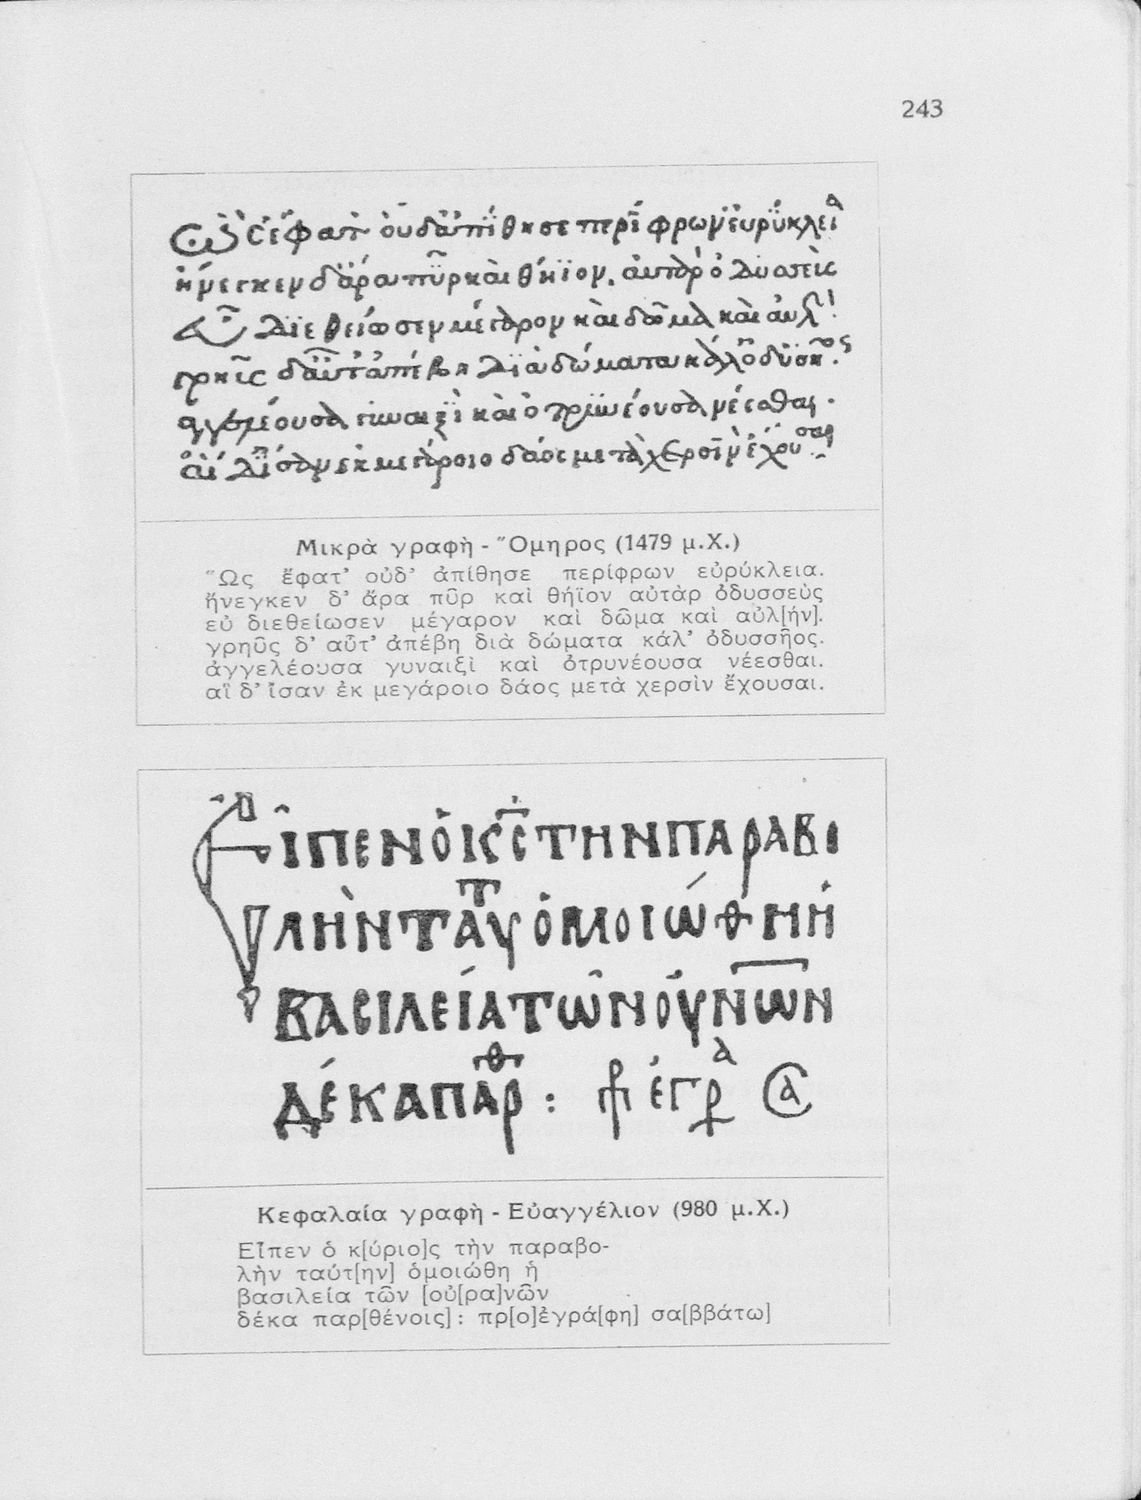 243
Ὣς ἔφατ' οὐδ' ἀπίθησε περίφρων εὐρύκλεια
ἤνεγκεν δ' ἄρα πῦρ καὶ θήϊον. αὐτὰρ ὀδυσσεὺς
εὖ διεθείωσεν μέγαρον καὶ δῶμα καὶ αὐλ
γρηῦς δ' αὖτ' ἀπέβη διὰ δώματα κάλ' ὀδυσσῆος.
ἀγγελέουσα γυναιξὶ καὶ ὀτρυνέουσα νέεσθαι.
αἳ δ' ἴσαν ἐκ μεγάροιο δάος μετὰ χερσὶν ἔχουσαι.
Μικρὰ γραφὴ - Ὅμηρος (1479 μ.Χ.)
Ὣς ἔφατ' οὐδ' ἀπίθησε περίφρων εὐρύκλεια.
ἤνεγκεν δ' ἄρα πῦρ καὶ θήϊον αὐτὰρ ὀδυσσεὺς
εὐ διεθείωσεν μέγαρον καὶ δῶμα καὶ αὐλ[ήν].
γρηῦς δ' αὖτ' ἀπέβη διὰ δώματα κάλ' ὀδυσσῆος.
ἀγγελέουσα γυναιξὶ καὶ ὀτρυνέουσα νέεσθαι.
αἳ δ' ἴσαν ἐκ μεγάροιο δάος μετὰ χερσὶν ἔχουσαι.
ΕἶΠΕΝ Ὁ ΚC ΤΗΝ ΠΑΡΑΒΟ
ΛῊΝ ΤΑΥΤ ὉΜΟΙΏΘΗ Ἡ
ΒΑCΙΛΕΊΑ ΤΩ͂Ν ΟΥΝΩΝ
ΔΈΚΑ ΠΑΡΘ : ΠΡ ἐΓΡΑ CΑ
Κεφαλαία γραφὴ - Εὐαγγέλιον (980 μ.Χ.)
Εἶπεν ὁ κ[ύριο]ς τὴν παραβο-
λὴν ταύτ[ην] ὁμοιώθη ἡ
βασιλεία τῶν [οὐ[ρα]νῶν
δέκα παρ[θένοις] : πρ[ο]ἐγρά[φη] σα[ββάτω]